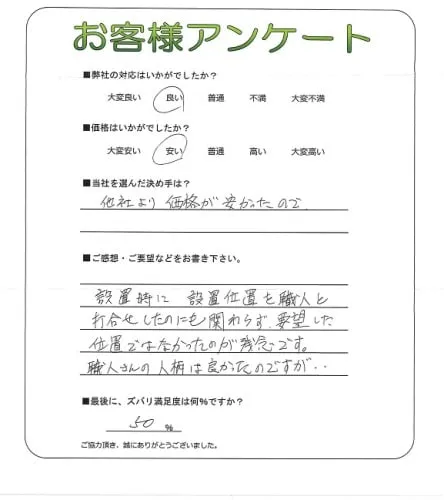 お客様アンケート
■弊社の対応はいかがでしたか？
大変良い 良い 普通 不満 大変不満
■価格はいかがでしたか？
大変安い 安い 普通 高い 大変高い
■当社を選んだ決め手は？
他社より価格が安かったので、
■ご感想・ご要望などをお書き下さい。
設置時に設置位置を職人と
打合せしたのにも関わらず、要望した
位置ではなかったのが残念です。
職人さんの人柄は良かったのですが‥
■最後に、ズバリ満足度は何％ですか？
50 ％
ご協力頂き、誠にありがとうございました。